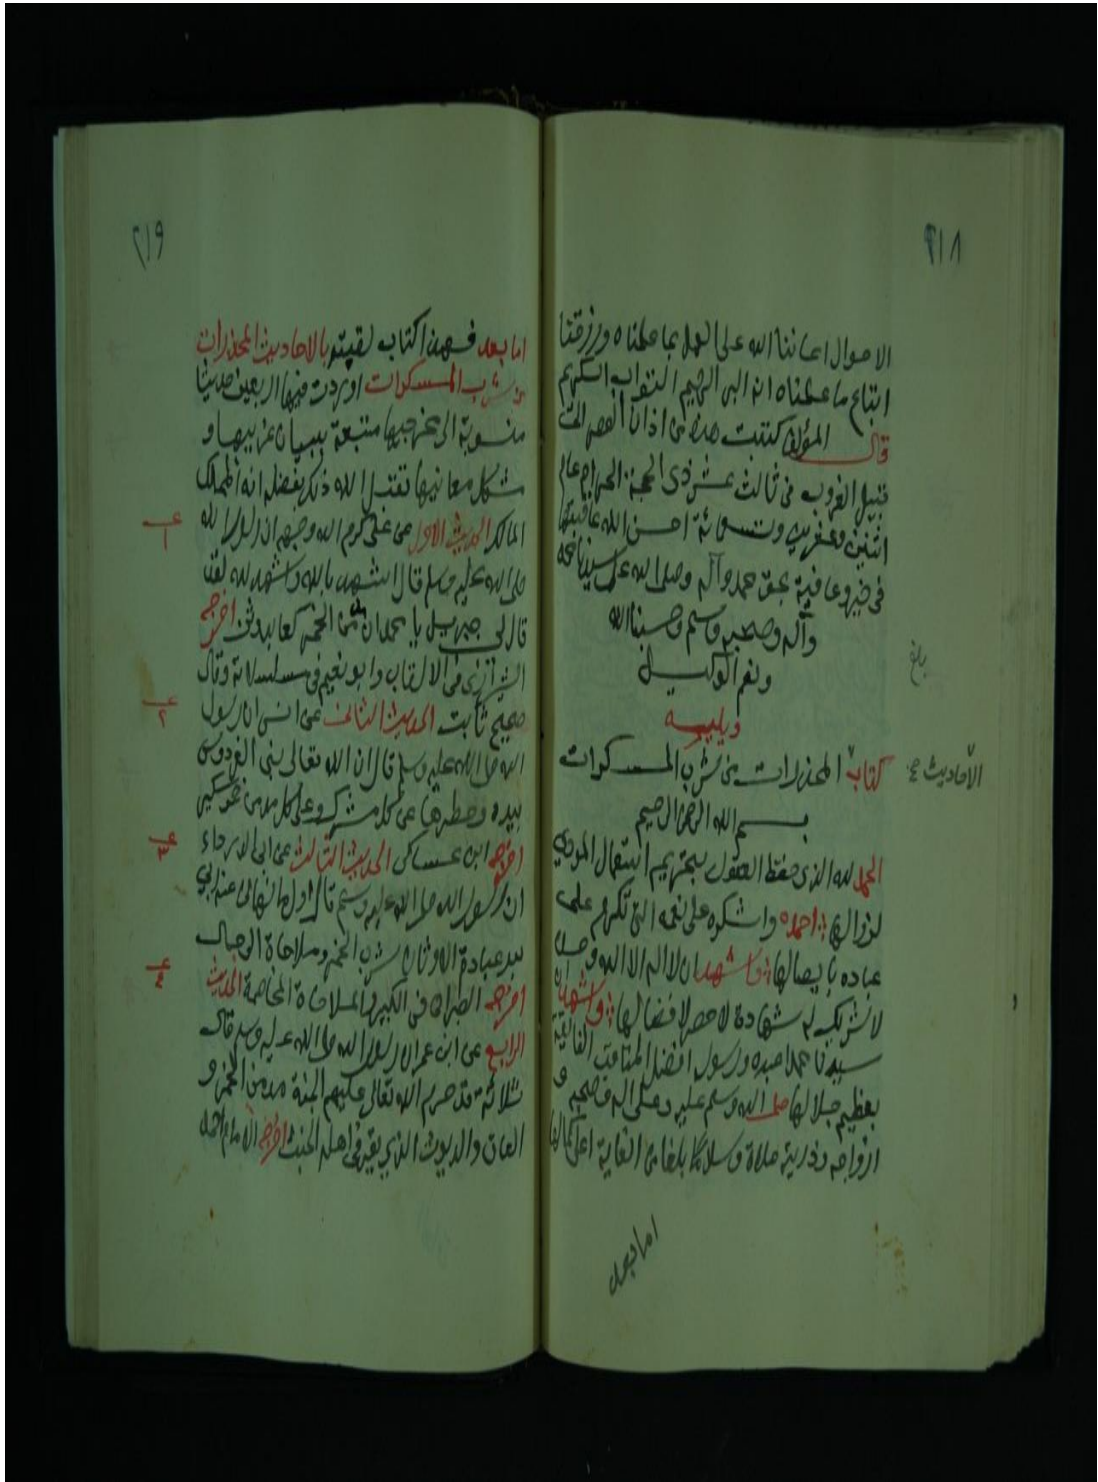 ٢١٨
الاحوال اعاننا الله على العمل بما علمناه ورزقنا
اتباع ما علمناه انه البر الرحيم التواب الكريم
قال المؤلف كتبت هذه من اذان العصر الى
قبيل الغروب في ثالث عشر ذى الحجة الحرام عام
اثنين وعشرين وتسعمائة احسن الله عاقبتها
في خير وعافية بحق محمد وآله وصلى الله على سيدنا محمد
وآله وصحبه وسلم وحسبنا الله
ونعم الوكيل
بلغ
ويليه
كتاب المحذرات من شرب المسكرات
الأحاديث
بسم الله الرحمن الرحيم
الحمد لله الذى حفظ العقول بتحريم استعمال المودى
لزوالها احمده واشكره على نعمه التى تكرم على
عباده بايصالها واشهد ان لا اله الا الله وحده
لا شريك له شهادة لا حصر لافضالها واشهد ان
سيدنا محمدا عبده ورسوله افضل المخلوقات
بعظيم جلالها صلى الله وسلم عليه وعلى اله وصحبه و
ازواجه وذريته صلاة وسلاما بلغا من الغاية اعلى كمالها
اما بعد
٢١٩
اما بعد فهذا كتاب لقبته بالاحاديث المحذرات
من شرب المسكرات اوردت فيها اربعين حديثا
منسوبة الى مخرجيها متبعة ببيان غريبها و
مشكل معانيها تقبل الله ذلك بفضله انه الملك
المالك الحديث الاول عن على كرم الله وجهه ان رسول الله
١
صلى الله عليه وسلم قال اشهد بالله واشهد لله لقد
قال لى جبريل يا محمد ان مدمن الخمر كعابد وثن اخرجه
الشيرازى في الالقاب وابو نعيم في مسلسلاته وقال
صحيح ثابت الحديث الثانى عن انس ان رسول
٢
الله صلى الله عليه وسلم قال ان الله تعالى بنى الفردوس
بيده وحظرها عن كل مشرك وعلى كل مدمن خمر سكير
اخرجه ابن عساكر الحديث الثالث عن ابى الدرداء
٣
ان رسول الله صلى الله عليه وسلم قال اول ما نهانى عنه ربى
بعد عبادة الاوثان شرب الخمر وملاحاة الرجال
اخرجه الطبرانى في الكبير الملاحاة المخاصمة الحديث
٤
الرابع عن ابن عمر ان رسول الله صلى الله عليه وسلم قال
ثلاثة قد حرم الله تعالى عليهم الجنة مدمن الخمر و
العاق والديوث الذى يقر في اهله الخبث اخرجه الامام احمد